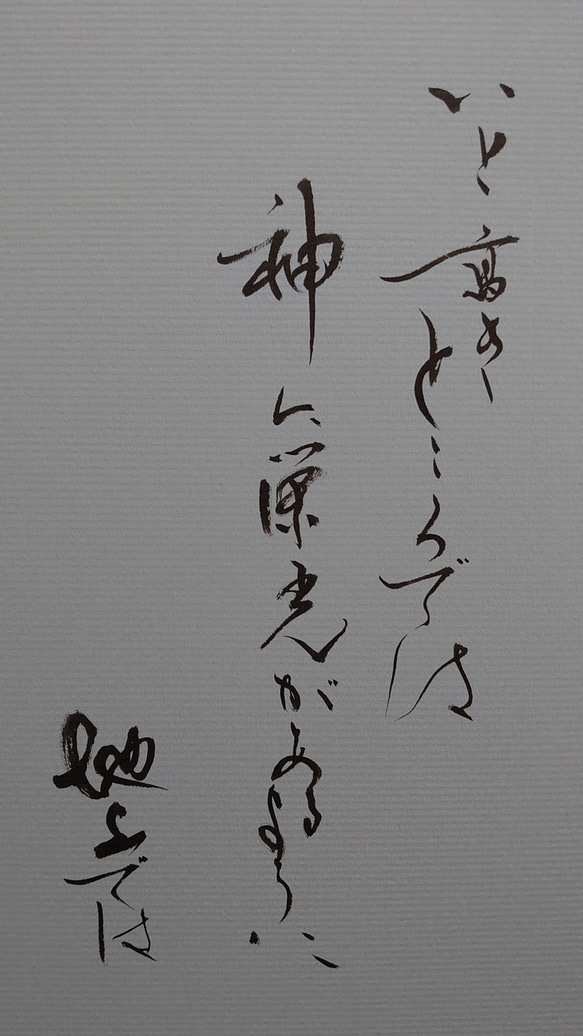 いと高きところでは
神に栄光があるように
地上では